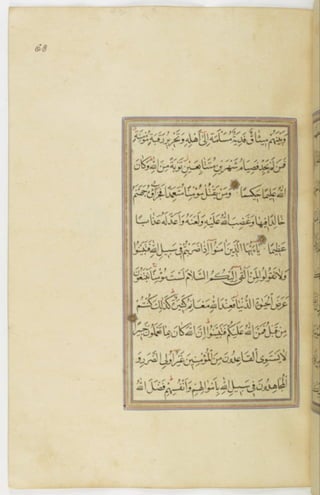 68
وَبَيْنَهُمْ مِيثَاقٌ فَدِيَةٌ مُسَلَّمَةٌ إِلَى أَهْلِهِ وَتَحْرِيرُ رَقَبَةٍ مُؤْمِنَةٍ
فَمَنْ لَمْ يَجِدْ فَصِيَامُ شَهْرَيْنِ مُتَتَابِعَيْنِ تَوْبَةً مِنَ اللهِ وَكَانَ
اللهُ عَلِيمًا حَكِيمًا وَمَنْ يَقْتُلْ مُؤْمِنًا مُتَعَمِّدًا فَجَزَاؤُهُ جَهَنَّمُ
خَالِدًا فِيهَا وَغَضِبَ اللهُ عَلَيْهِ وَلَعَنَهُ وَأَعَدَّ لَهُ عَذَابًا
عَظِيمًا يَا أَيُّهَا الَّذِينَ آمَنُوا إِذَا ضَرَبْتُمْ فِي سَبِيلِ اللهِ فَتَبَيَّنُوا
وَلَا تَقُولُوا لِمَنْ أَلْقَى إِلَيْكُمُ السَّلَامَ لَسْتَ مُؤْمِنًا تَبْتَغُونَ
عَرَضَ الْحَيٰوةِ الدُّنْيَا فَعِنْدَ اللهِ مَغَانِمُ كَثِيرَةٌ كَذَلِكَ كُنْتُمْ
مِنْ قَبْلُ فَمَنَّ اللهُ عَلَيْكُمْ فَتَبَيَّنُوا إِنَّ اللهَ كَانَ بِمَا تَعْمَلُونَ خَبِيرًا
لَا يَسْتَوِي الْقَاعِدُونَ مِنَ الْمُؤْمِنِينَ غَيْرُ أُولِي الضَّرَرِ وَ
الْمُجَاهِدُونَ فِي سَبِيلِ اللهِ بِأَمْوَالِهِمْ وَأَنْفُسِهِمْ فَضَّلَ اللهُ